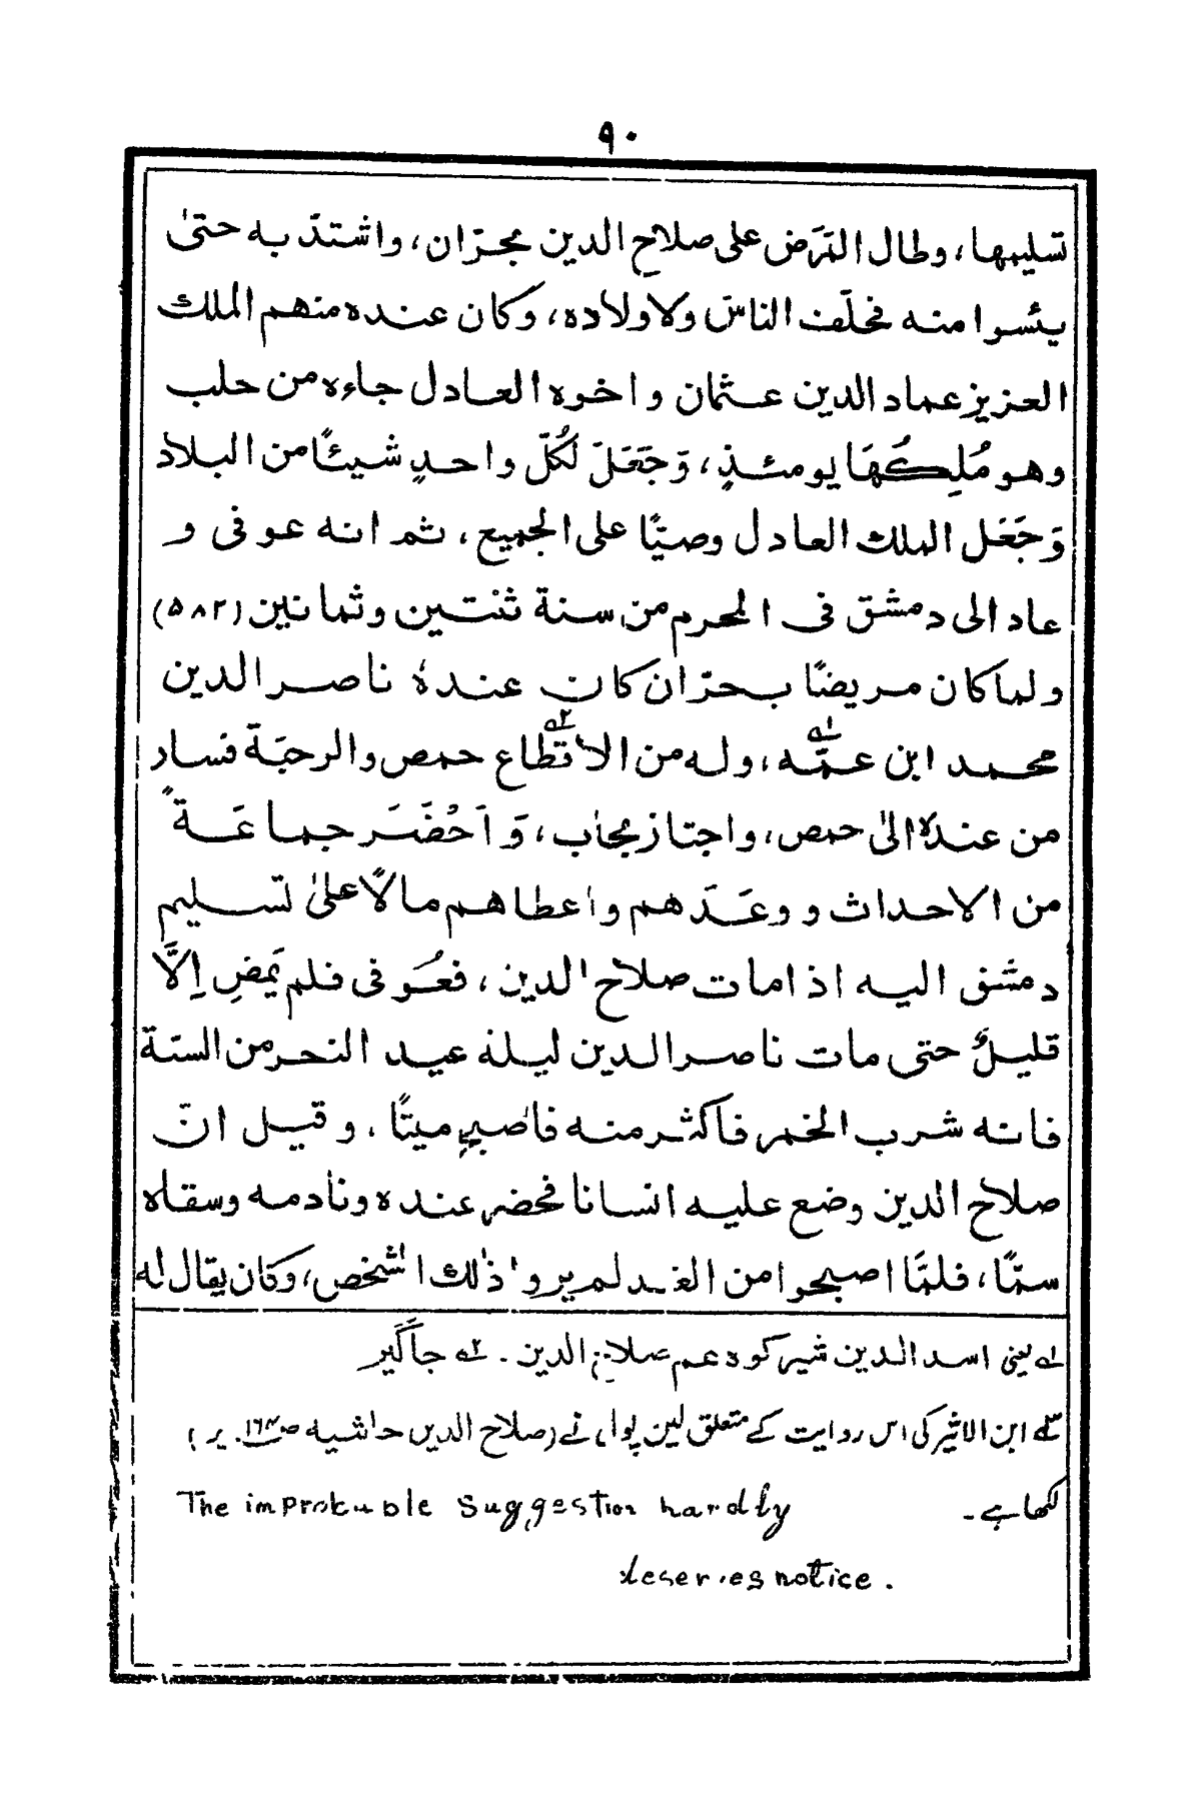 ٩٠
تسليمها، وطال المَرَض على صلاح الدين بحرّان، واشتدّ به حتىٰ
يئسوا منه فحلّف الناسَ ولاولاده، وكان عنده منهم الملك
العزيز عماد الدين عثمان واخوه العادل جاءه من حلب
وهو مُلِكُهَا يومئذٍ، وَجَعَلَ لكُلّ واحدٍ شيئًا من البلاد
وَجَعَل الملك العادل وصيًّا على الجميع، ثم انه عوفى و
عاد الى دمشق فى المحرم من سنة ثنتين وثمانين (۵۸۲)
ولما كان مريضًا بحرّان كان عندهٗ ناصر الدين
محمد ابن عمّه١ـه، وله من الاقطاع٢ـه حمص والرحبَة فسار
من عندهٖ الىٰ حمص، واجتاز بحلب، وَاَحْضَرَ جماعَةً
من الاحداث ووعَدَهم واعطاهم مالًا علىٰ تسليم
دمشق اليه اذا مات صلاح الدين، فعُوفى فلم يَمضِ اِلَّا
قليلٌ حتى مات ناصر الدين ليلة عيد النحر من السنة
فانه شرب الخمر فاكثر منه فاصبح ميتًا، وقيل انّ
صلاح الدين وضع عليه انسانا فحضر عنده ونادمه وسقاه
سمًّا، فلمّا اصبحوا من الغد لم يروا ذٰلك الشخص، وكان يقال له
١ـه یعنی اسد الدین شیرکوه عم صلاح الدین ۔ ٢ـه جاگیر
٣ـه ابن الاثیر کی اس روایت کے متعلق لین پول نے (صلاح الدین حاشیه ص١٦٤ ۔ پر)
لکھا ہے۔ The improbable suggestion hardly
deserves notice.